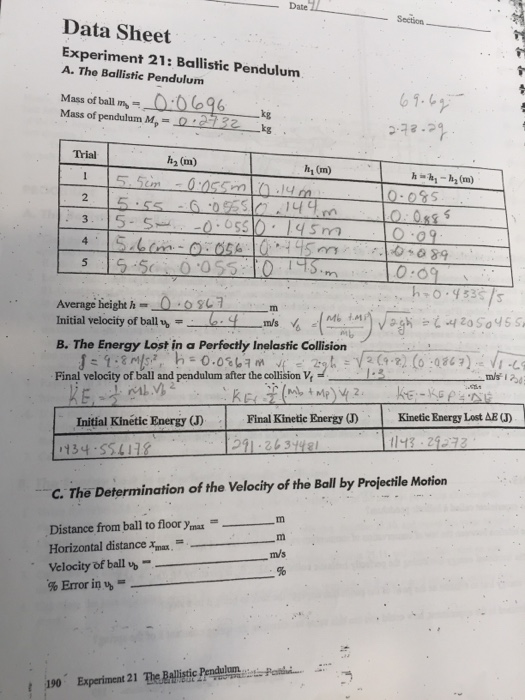 Date
Section
Data Sheet
Experiment 21: Ballistic Pendulum
A. The Ballistic Pendulum
Mass of ball m_b = 0.0696 kg
69.6g
Mass of pendulum M_p = 0.2732 kg
273.2g
Trial h₂ (m) h₁ (m) h = h₁ - h₂ (m)
1 5.5cm - 0.055m 0.14m 0.085
2 5.55 - 0.0555 0.144m 0.0885
3 5.5 - 0.055 0.145m 0.09
4 5.6cm - 0.056 0.145m 0.089
5 5.5c 0.055 0.145m 0.09
h = 0.4335/5
Average height h = 0.0867 m
Initial velocity of ball v_b = 6.4 m/s v_b = (m_b + M_p / m_b) √2gh = 6.42050455
B. The Energy Lost in a Perfectly Inelastic Collision
g = 9.8 m/s², h = 0.0867m = √2(9.8)(0.0867)
Final velocity of ball and pendulum after the collision V_f = 1.3 m/s
KE_i = ½ m_b v_b² KE_f = ½ (m_b + M_p) V_f²
Initial Kinetic Energy (J) Final Kinetic Energy (J) Kinetic Energy Lost ΔE (J)
1434.556178 291.2634481 1143.29273
C. The Determination of the Velocity of the Ball by Projectile Motion
Distance from ball to floor y_max = m
Horizontal distance x_max = m
Velocity of ball v_b = m/s
% Error in v_b = %
190 Experiment 21 The Ballistic Pendulum